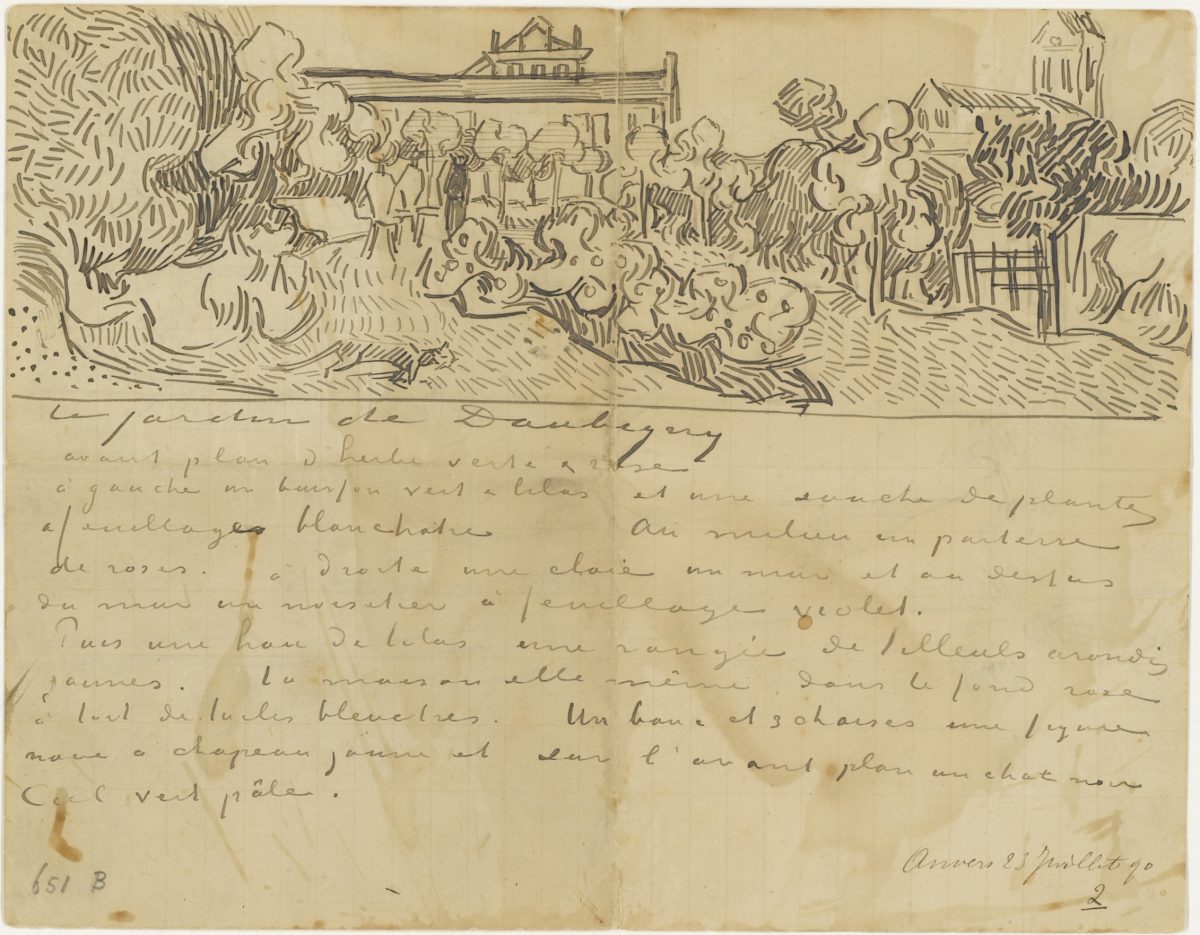 Le jardin de Daubigny
avant plan d'herbe verte & rose
à gauche un buisson vert & lilas et une souche de plantes
a feuillages blanchatre Au milieu un parterre
de roses. à droite une claie un mur et au dessus
du mur un noisetier à feuillage violet.
Puis une haie de lilas une rangée de tilleuls arondis
jaunes. La maison elle même dans le fond rose
à toit de tuiles bleuatres. Un banc et 3 chaises une figure
noire à chapeau jaune et sur l'avant plan un chat noir
Ciel vert pâle.
651 B
Anvers 23 Juillet 90
2